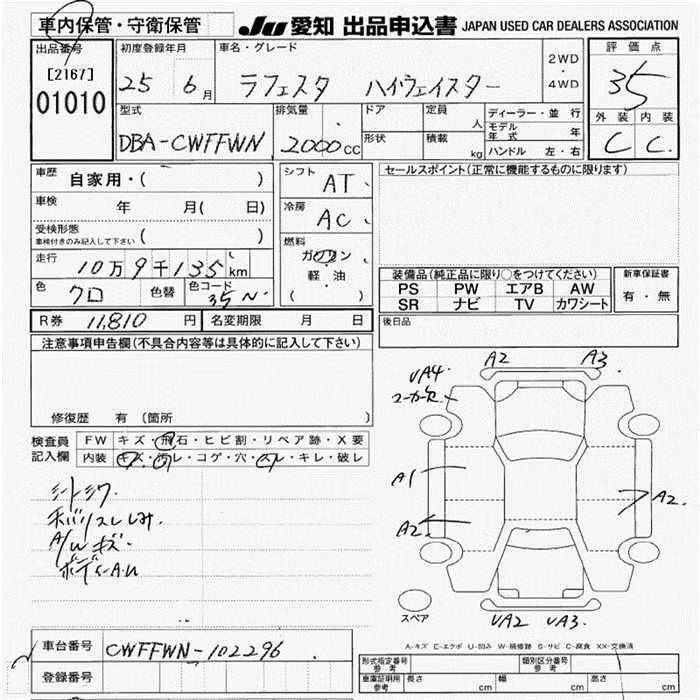 車内保管・守衛保管
JU 愛知 出品申込書 JAPAN USED CAR DEALERS ASSOCIATION
出品番号 [2167] 01010
初度登録年月 25 6月
車名・グレード ラフェスタ ハイウェイスター
2WD・4WD
評価点 35
外装 内装
C C
型式 DBA-CWFFWN
排気量 2000cc
ドア
形状
定員 人
積載 kg
ディーラー・並行
モデル年式 年
ハンドル 左・右
車歴 自家用・( )
車検 年 月( 日)
受検形態
車検付きのみ記入して下さい ( )
走行 10万9千135km
色 クロ 色替 色コード 35N
シフト AT
冷房 AC
燃料 ガソリン
軽・油
( )
セールスポイント(正常に機能するものに限ります)
装備品(純正品に限り○をつけてください)
PS PW エアB AW
SR ナビ TV カワシート
新車保証書
有・無
R券 11,810円 名変期限 月 日
後日品
注意事項申告欄(不具合内容等は具体的に記入して下さい)
修復歴 有 〔箇所 〕
検査員記入欄
FW キズ・飛石・ヒビ割・リペア跡・X要
内装 キズ・汚レ・コゲ・穴・ハレ・キレ・破レ
シートシワ.
A/Wキズ.
ボデーA.U
A2 A3
UA4.
A1
A2
A2
スペア
UA2 UA3
A-キズ E-エクボ U-凹み W-補修跡 S-サビ C-腐食 XX-交換済
車台番号 CWFFWN-102296
登録番号
形式指定番号 参考
類別区分番号 参考
車庫証明用 参考
長さ cm 幅 cm 高さ cm